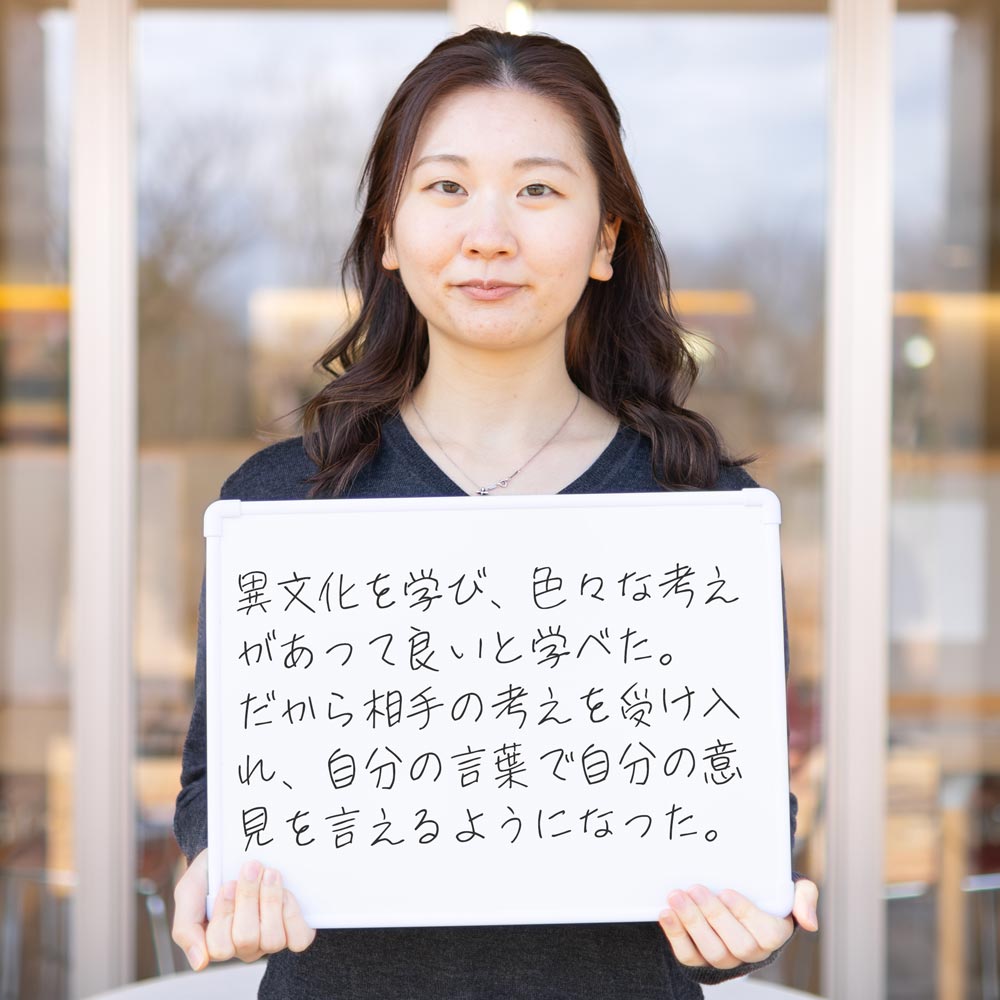 異文化を学び、色々な考え
があって良いと学べた。
だから相手の考えを受け入
れ、自分の言葉で自分の意
見を言えるようになった。